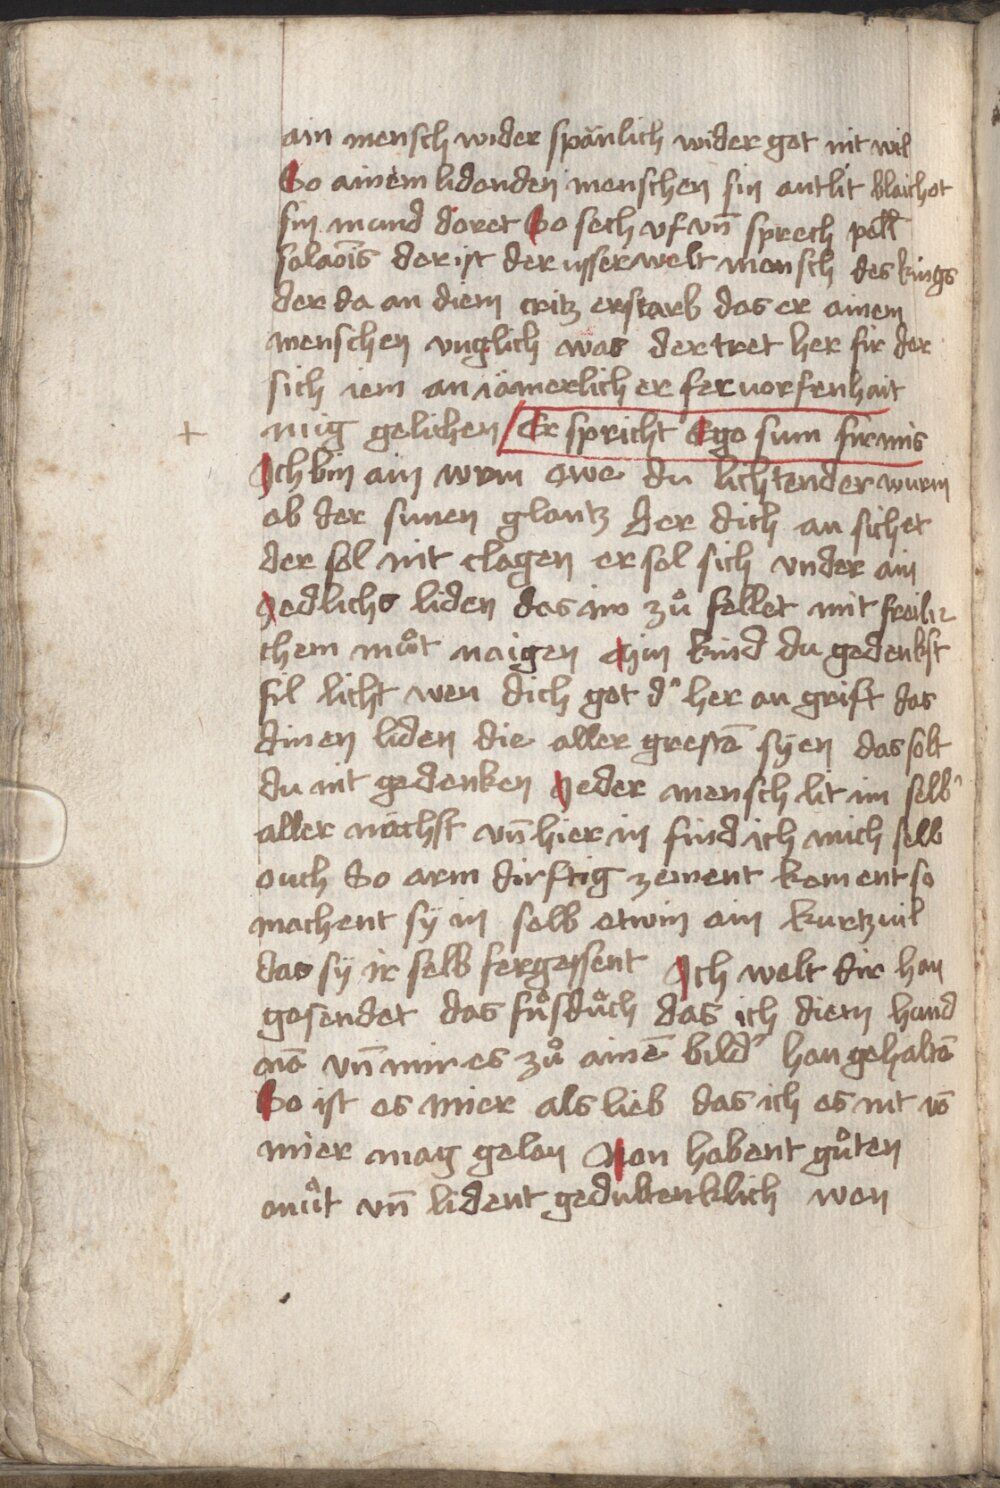 ain mensch wider spänlich wider got nit wil
So ainem lidenden menschen sin antlit blaichet
sin mund doret So sech vf vn̄ sprech pell
salaōis der ist der usser welt mensch des kings
der da an diem critz erstarb das er ainem
menschen vnglich was der tret her fir der
sich iem an iämerlich er feruorfenhait
mig gelichen Er spricht Ego sum firmis
Ich bin ain wrm owe du lichtender wurm
ob der sunen glantz der dich an sichet
der sol nit clagen er sol sich vnder ain
yedlichs liden das im zuͦ fellet mit freilı
chem muͦt naigen Min kind du gedenkst
fil licht wen dich got dˀ her an grift das
dinen liden die aller grestā syen das solt
du nit gedenken Yeder mensch lit im selbˀ
aller nächst vn̄ hier in find ich mich selb
ouch So arm dirftig zement koment so
machent sÿ in selb etwin ein kurtzuil
das sÿ ir selb fergessent Ich welt dir han
gesendet das fuͦsduͦch das ich diem hund
nā vn̄ mir es zuͦ ainē bildˀ han gehaltā
So ist es mier als lieb das ich es nit vō
mier mag gelan Non habent guͦten
muͦt vn̄ lident gedultenklich wan